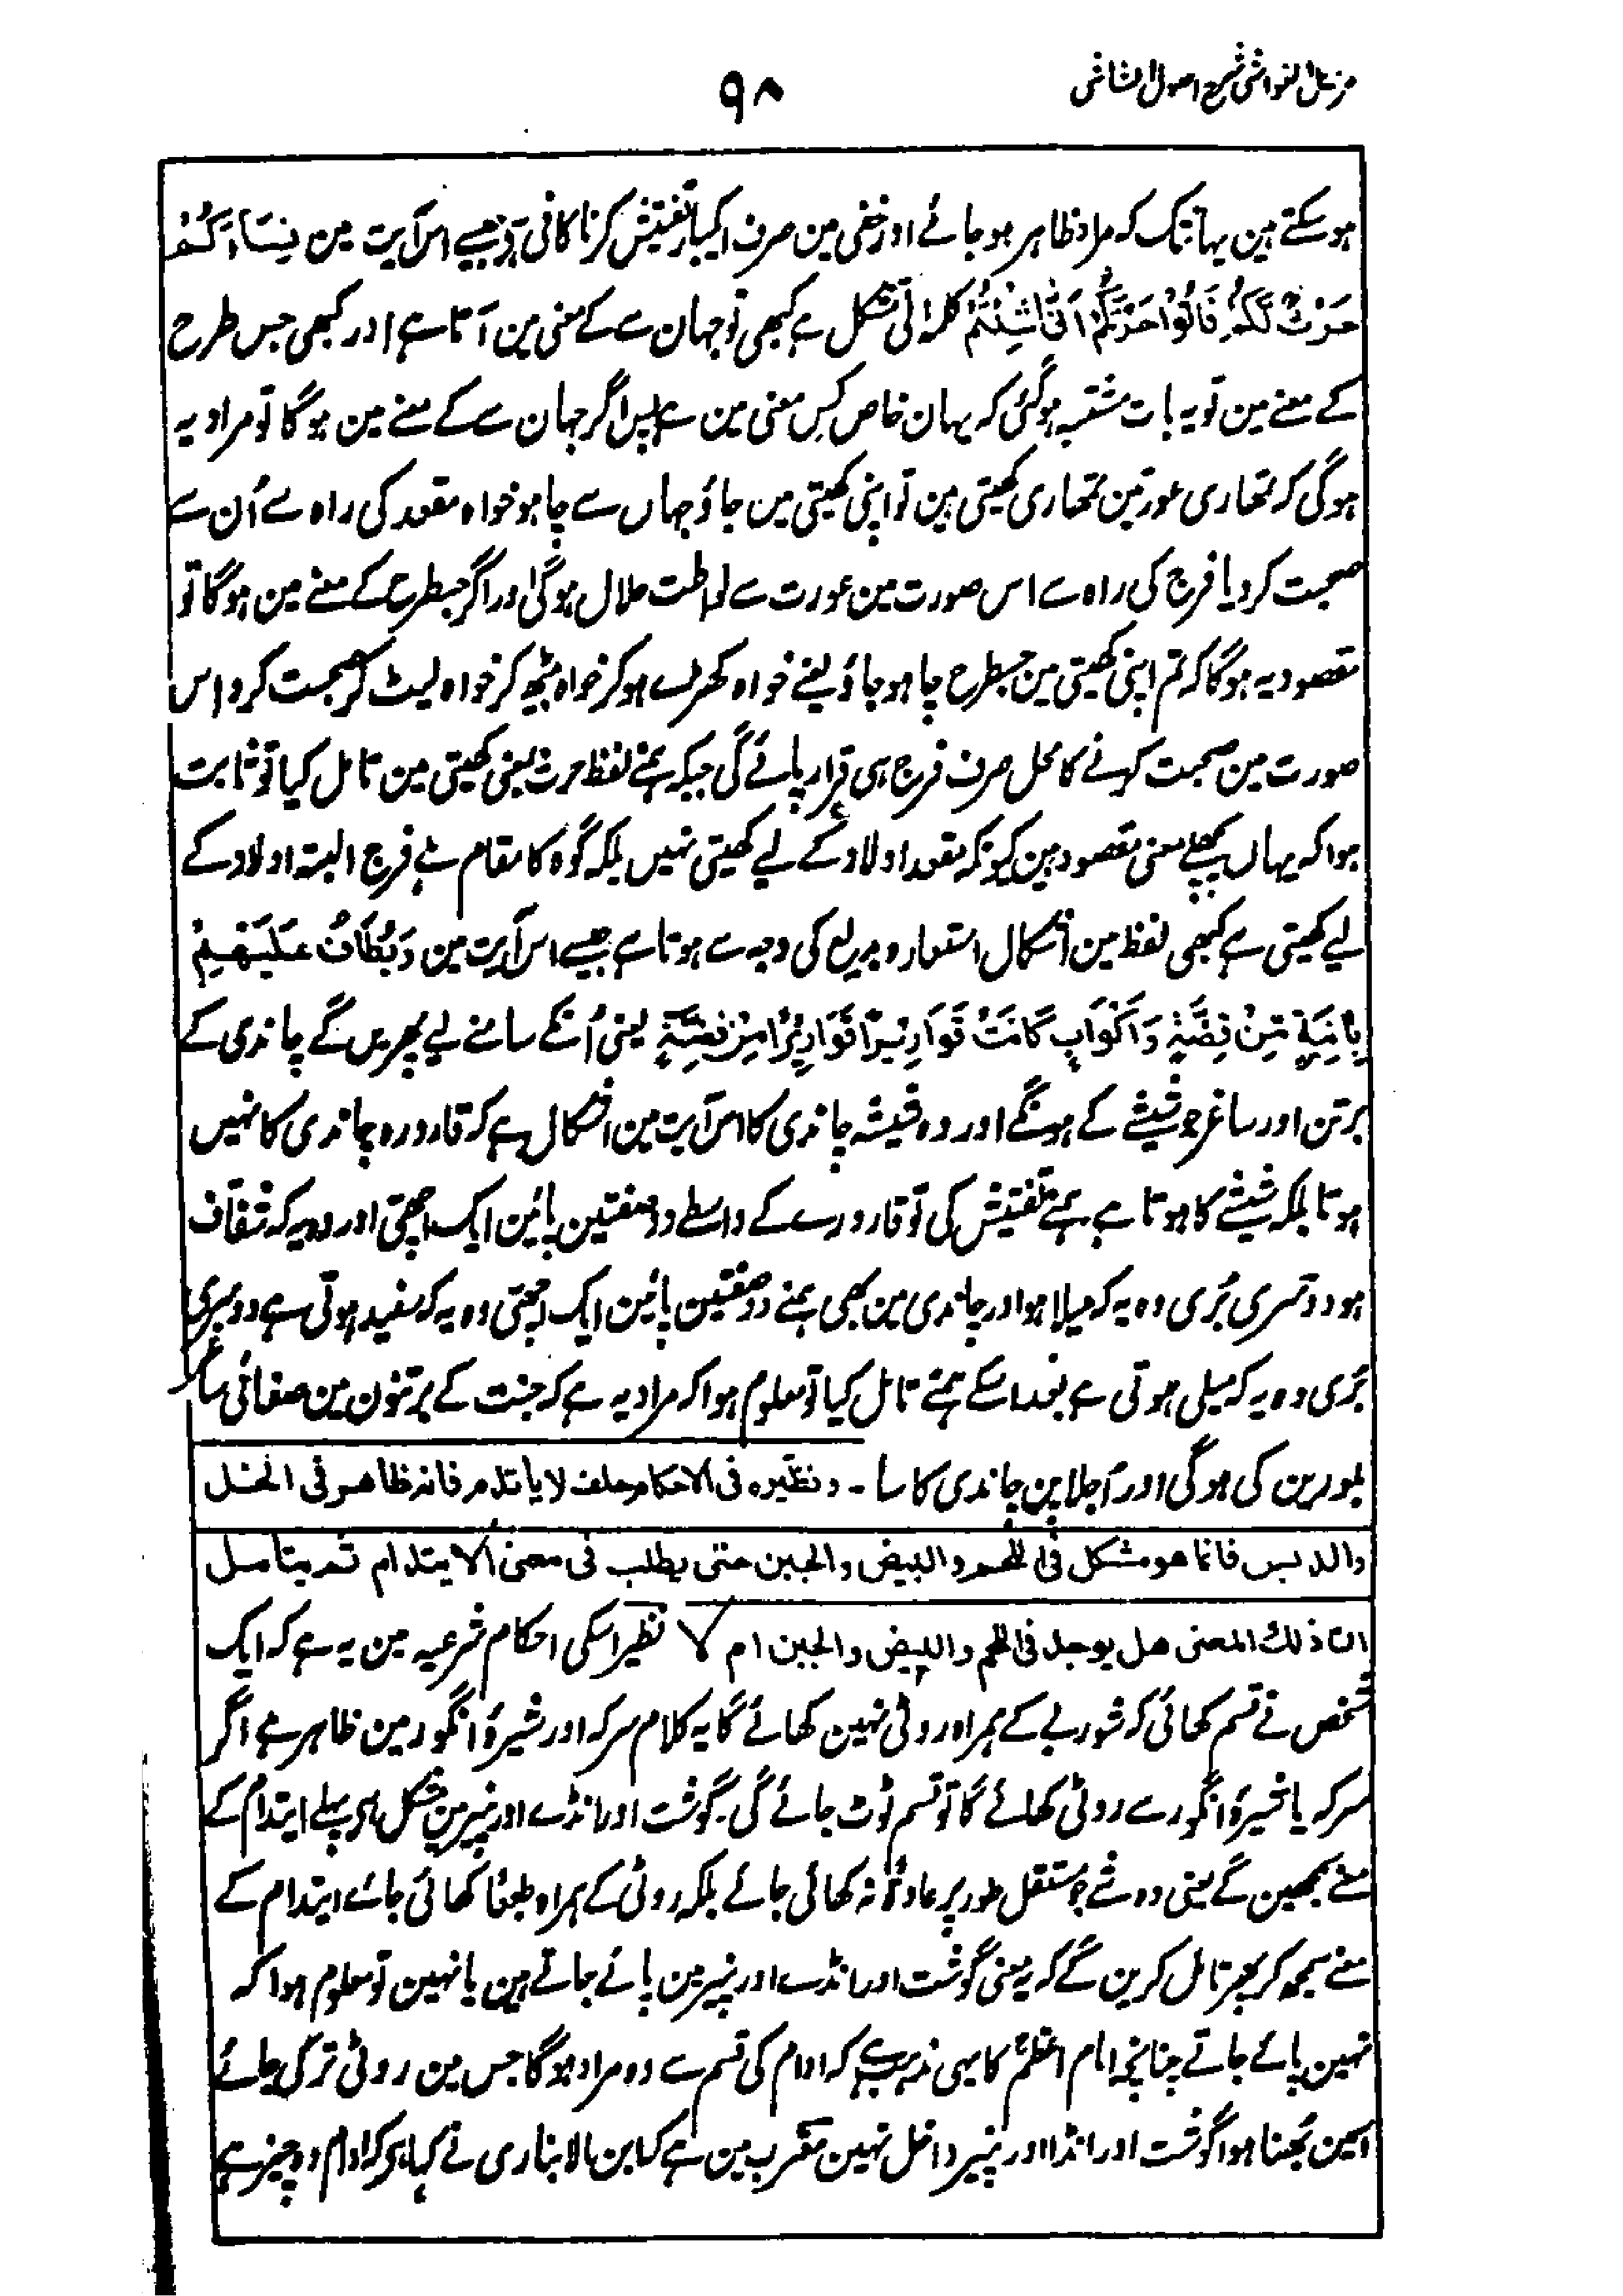 مزیل الغواشی شرح اصول الشاشی
۹۸
ہو سکتے ہین یہانتک کہ مراد ظاہر ہو جائے اور خفی مین صرف ایکبار تفتیش کرنا کافی ہے جیسے اس آیت مین نِسَاءُكُمْ
حَرْثٌ لَّكُمْ فَاْتُوْا حَرْثَكُمْ اَنّٰى شِئْتُمْ کلمۂ اَنّٰی مشکل ہے کبھی تو جہان سے کے معنی مین آتا ہے اور کبھی جس طرح
کے معنے مین تو یہ بات مشتبہ ہو گئی کہ یہان خاص کس معنی مین ہے پس اگر جہان سے کے معنے مین ہو گا تو مراد یہ
ہو گی کہ تمھاری عورتین تمھاری کھیتی ہین تو اپنی کھیتی میں جاؤ جہاں سے چاہو خواہ مقعد کی راہ سے اُن سے
صحبت کرو یا فرج کی راہ سے اس صورت مین عورت سے لواطت حلال ہو گی اور اگر جسطرح کے معنے مین ہو گا تو
مقصود یہ ہو گا کہ تم اپنی کھیتی مین جسطرح چاہو جاؤ یعنے خواہ کھڑے ہو کر خواہ بیٹھ کر خواہ لیٹ کر صحبت کرو اس
صورت مین صحبت کرنے کا محل صرف فرج ہی قرار پائے گی جبکہ ہمنے لفظ حرث یعنی کھیتی مین تامل کیا تو ثابت
ہوا کہ یہاں پچھلے معنی مقصود ہین کیونکہ مقعد اولاد کے لیے کھیتی نہیں بلکہ گوہ کا مقام ہے فرج البتہ اولاد کے
لیے کھیتی ہے کبھی لفظ مین اشکال استعارہ بدیع کی وجہ سے ہوتا ہے جیسے اس آیت مین وَيُطَافُ عَلَيْهِمْ
بِاٰنِيَةٍ مِّنْ فِضَّةٍ وَّاَكْوَابٍ كَانَتْ قَوَارِيْرَا قَوَارِيْرَا مِنْ فِضَّةٍ یعنی اُنکے سامنے لیے پھریں گے چاندی کے
برتن اور ساغر جو شیشے کے ہونگے اور وہ شیشہ چاندی کا اس آیت مین اشکال ہے کہ قارورہ چاندی کا نہیں
ہوتا بلکہ شیشے کا ہوتا ہے ہمنے تفتیش کی تو قارورے کے واسطے دو صفتین پائین ایک اچھی اور وہ یہ کہ شفاف
ہو دوسری بُری وہ یہ کہ میلا ہو اور چاندی مین بھی ہمنے دو صفتین پائین ایک اچھی وہ یہ کہ سفید ہوتی ہے دوسری
بُری وہ یہ کہ میلی ہوتی ہے بعد اسکے ہمنے تامل کیا تو معلوم ہوا کہ مراد یہ ہے کہ جنت کے برتنون مین صفائی ساغر
بلورین کی ہو گی اور اُجلا پن چاندی کا سا۔ ونظیرہ فی الاحکام حلف لا یاتدم فانہ ظاھر فی الخل
والدبس فانما ھو مشکل فی اللحم والبیض والجبن حتی یطلب فی معنی الایتدام ثم یتامل
ان ذلك المعنی ھل یوجد فی اللحم والبیض والجبن ام لا نظیر اسکی احکام شرعیہ مین یہ ہے کہ ایک
شخص نے قسم کھائی کہ شوربے کے ہمراہ روٹی نہین کھائے گا یہ کلام سرکہ اور شیرۂ انگور مین ظاہر ہے اگر
سرکہ یا شیرۂ انگور سے روٹی کھائے گا تو قسم ٹوٹ جائے گی۔ گوشت اور انڈے اور پنیر مین مشکل ہے پہلے ایتدام کے
معنے سمجھین گے یعنی وہ شے جو مستقل طور پر عادۃً نہ کھائی جائے بلکہ روٹی کے ہمراہ طبعًا کھائی جائے ایتدام کے
معنے سمجھ کر پھر تامل کرین گے کہ یہ معنی گوشت اور انڈے اور پنیر مین پائے جاتے ہین یا نہین تو معلوم ہوا کہ
نہین پائے جاتے چنانچہ امام اعظمؒ کا یہی مذہب ہے کہ ادام کی قسم سے وہ مراد ہو گا جس مین روٹی تر کی جائے
اسمین بھنا ہوا گوشت اور انڈا اور پنیر داخل نہین مغرب مین ہے کہ ابن الانباری نے کہا ہے کہ ادام وہ چیز ہے